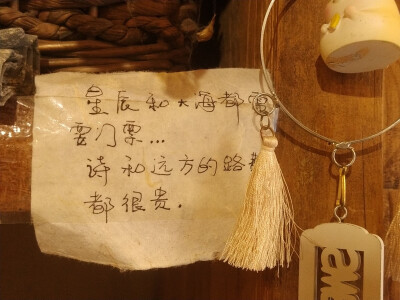 星辰和大海都需
要门票...
诗和远方的路费
都很贵.